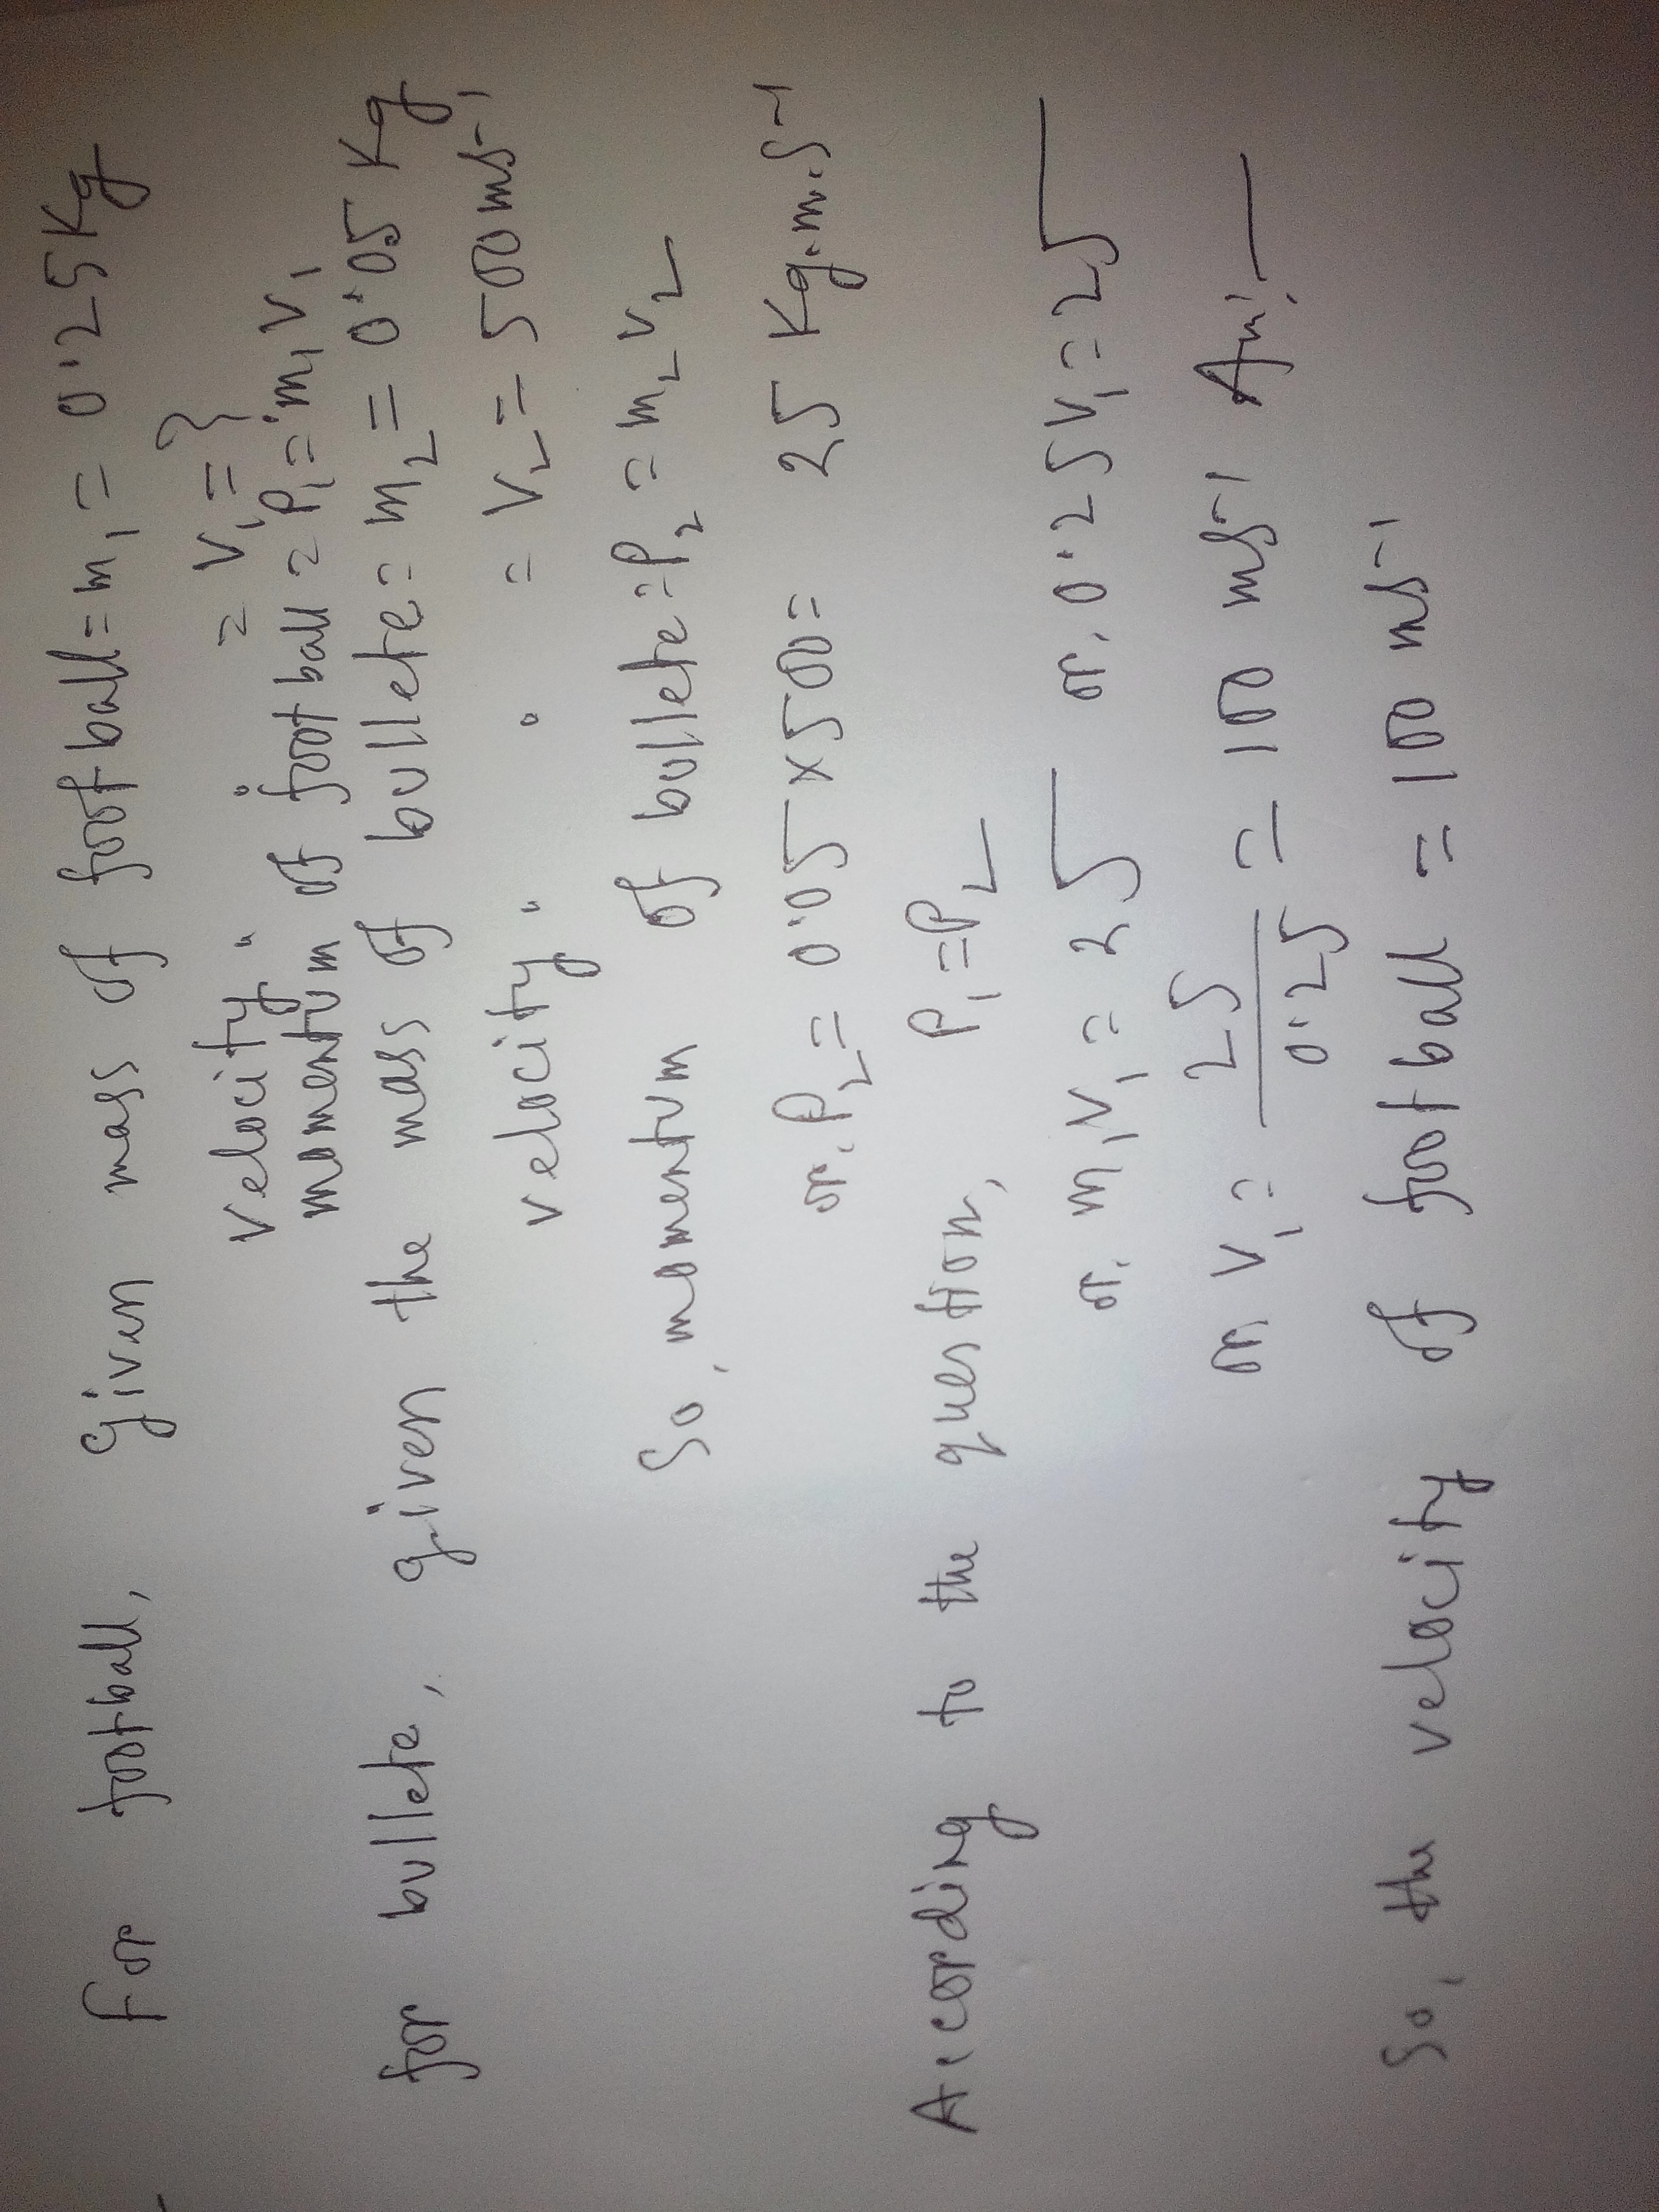 For football, given mass of football = m₁ = 0.25 Kg
velocity " " = V₁ = ?
momentum of football = P₁ = m₁V₁
for bullete, given the mass of bullete = m₂ = 0.05 Kg
velocity " " = V₂ = 500 ms⁻¹
So, momentum of bullete = P₂ = m₂V₂
or, P₂ = 0.05 × 500 = 25 Kg.m.s⁻¹
According to the question, P₁ = P₂
or, m₁V₁ = 25 or, 0.25V₁ = 25
or, V₁ = 25/0.25 = 100 ms⁻¹ Ans:
So, the velocity of football = 100 ms⁻¹